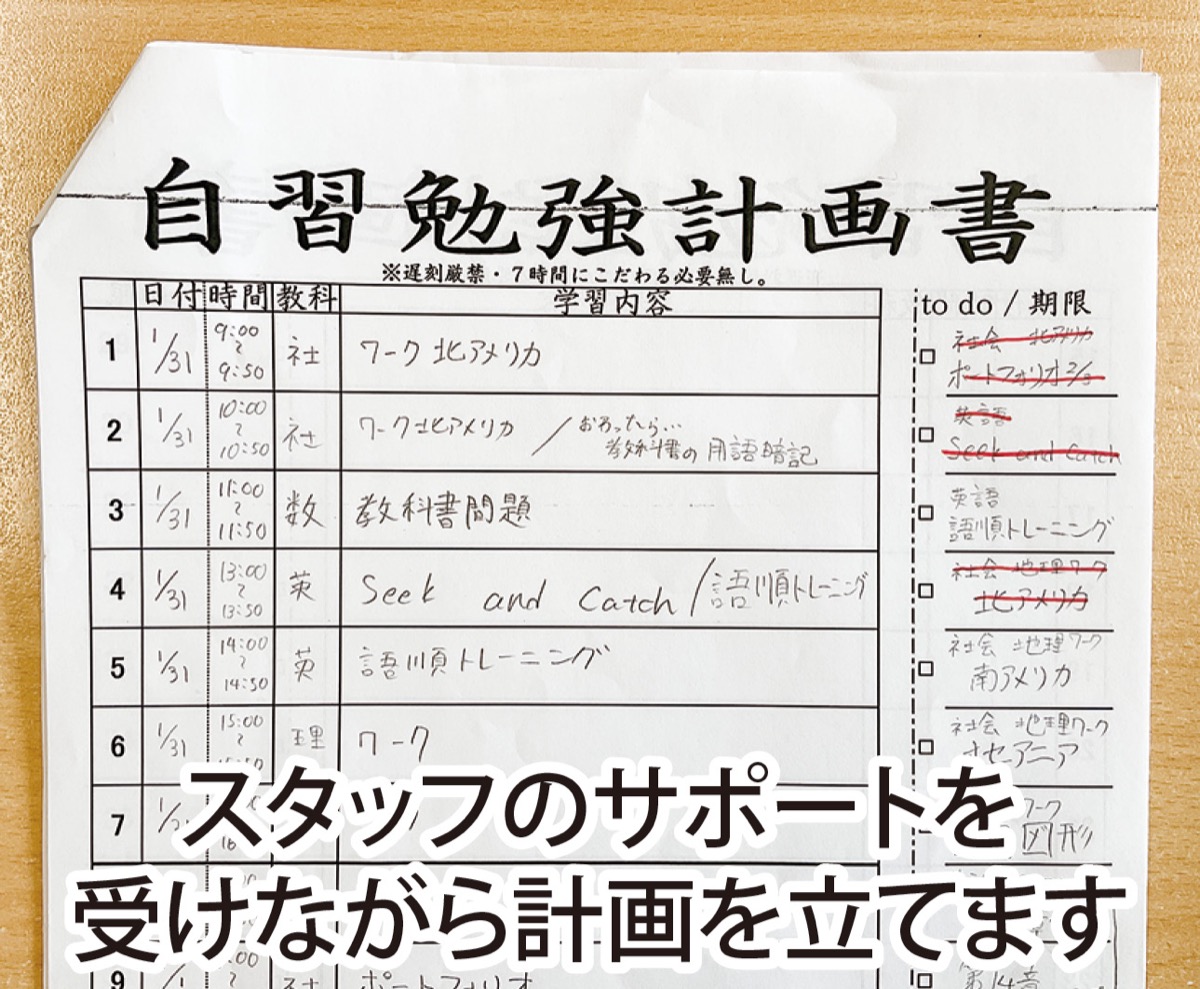 自習勉強計画書
※遅刻厳禁・7時間にこだわる必要無し。
日付 時間 教科 学習内容 to do / 期限
1 1/31 9:00 ~ 9:50 社 ワーク 北アメリカ
社会 北アメリカ
ポートフォリオ 2/3
2 1/31 10:00 ~ 10:50 社 ワーク北アメリカ / おわったら…
教科書の用語暗記
英語
Seek and Catch
3 1/31 11:00 ~ 11:50 数 教科書問題
英語
語順トレーニング
4 1/31 13:00 ~ 13:50 英 Seek and Catch / 語順トレーニング
社会 地理ワーク
北アメリカ
5 1/31 14:00 ~ 14:50 英 語順トレーニング
社会 地理ワーク
南アメリカ
6 1/31 15:00 ~ 理 ワーク
社会 地理ワーク
オセアニア
7
ワーク
図形
スタッフのサポートを
受けながら計画を立てます
9 :00 社 ポートフォリオ
第14章